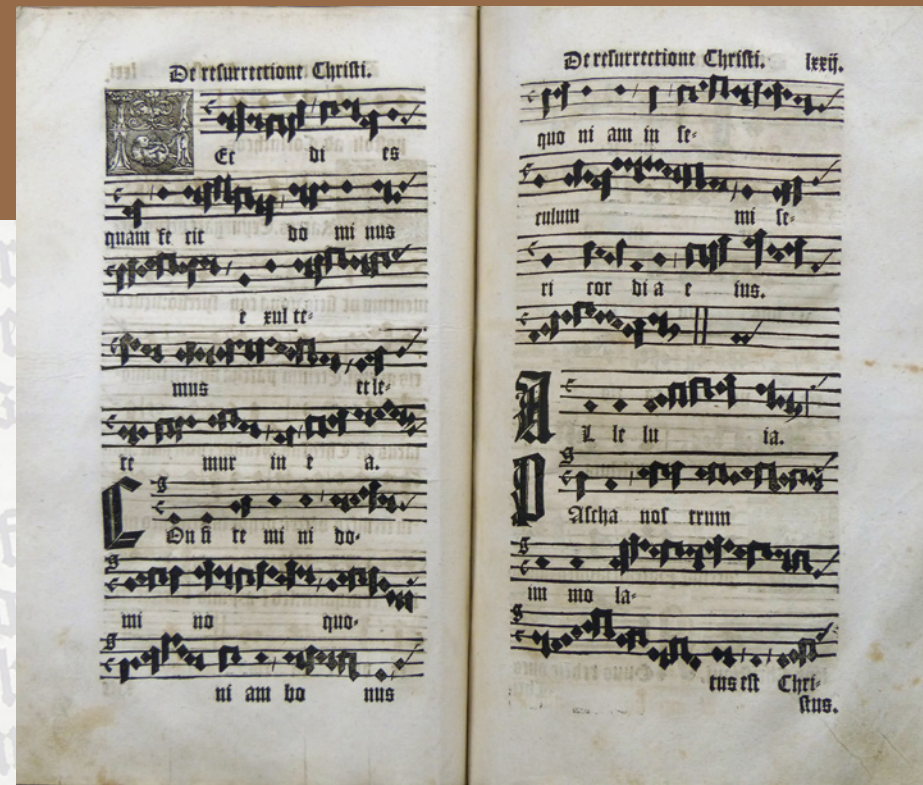 De resurrectione Christi.
HEc di es
quam fe cit do mi nus
e xul te-
mus et le-
te mur in e a.
COn fi te mi ni do-
mi no quo-
ni am bo nus
De resurrectione Christi. lxxij.
quo ni am in se-
culum mi se-
ri cor di a e ius.
AL le lu ia.
PAscha nos trum
im mo la-
tus est Chri-
stus.